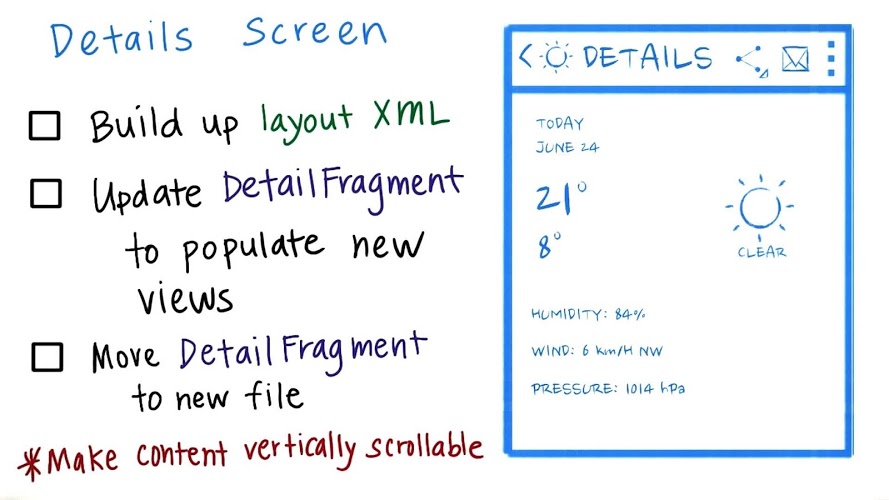 Details Screen
Build up layout XML
Update DetailFragment
to populate new
views
Move DetailFragment
to new file
*Make content vertically scrollable
DETAILS
TODAY
JUNE 24
21°
8°
CLEAR
HUMIDITY: 84%
WIND: 6 km/H NW
PRESSURE: 1014 hPa